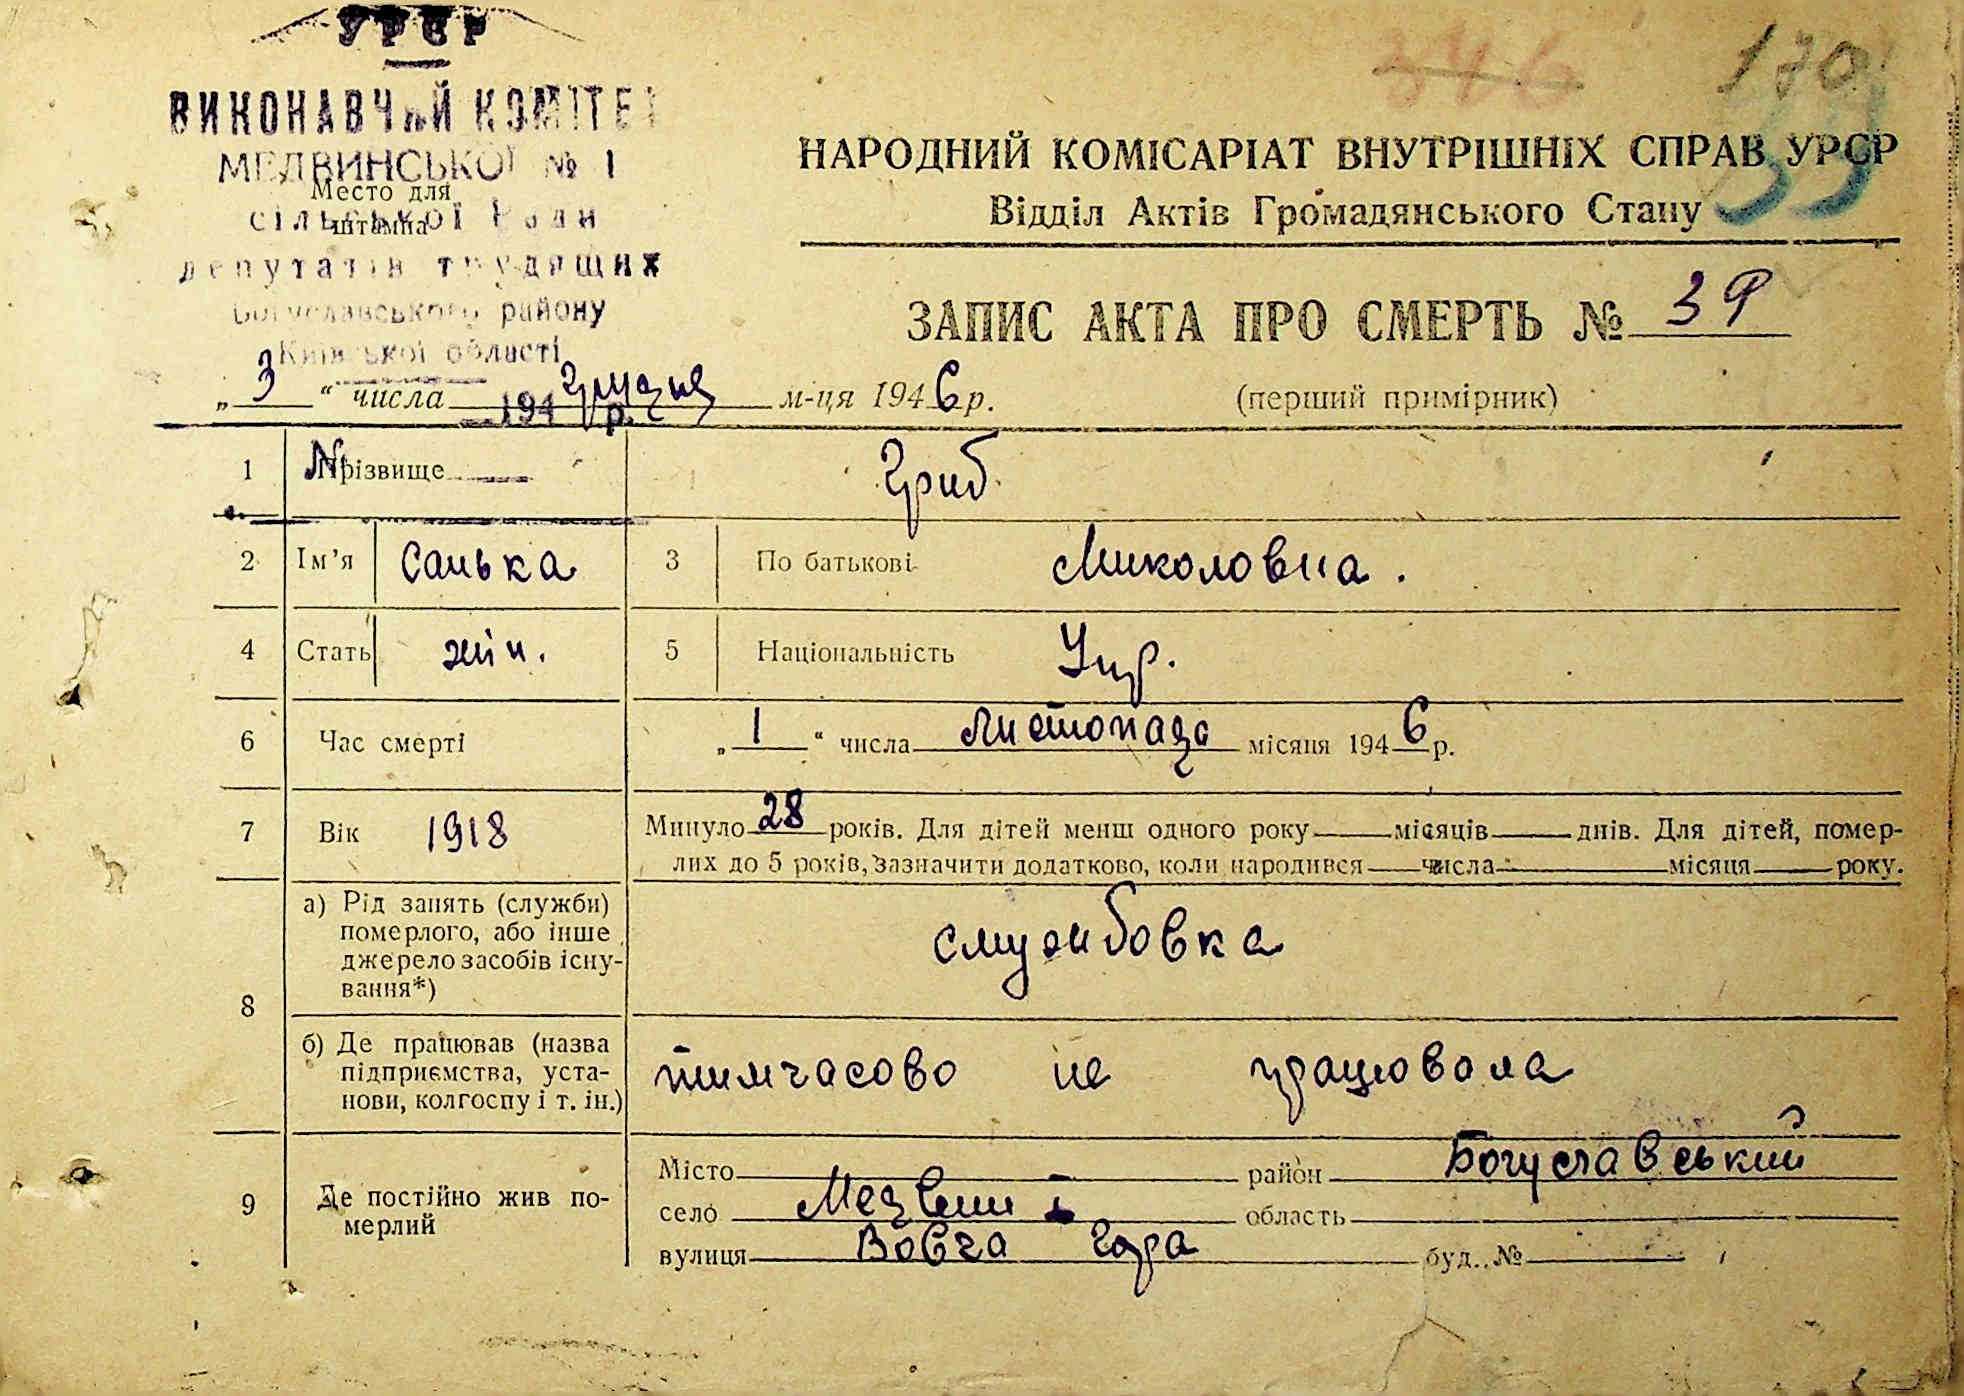 УРСР
ВИКОНАВЧИЙ КОМІТЕТ
МЕДВИНСЬКОЇ № 1
Место для
штампа
сільської Ради
депутатів трудящих
Богуславського району
Київської області
194 р.
346 170
39
НАРОДНИЙ КОМІСАРІАТ ВНУТРІШНІХ СПРАВ УРСР
Відділ Актів Громадянського Стану
ЗАПИС АКТА ПРО СМЕРТЬ № 39
„ 3 “ числа грудня м-ця 1946 р.
(перший примірник)
1 Прізвище Гриб
2 Ім’я Санька 3 По батькові Миколовна.
4 Стать жін. 5 Національність Укр.
6 Час смерті „ 1 “ числа листопада місяця 1946 р.
7 Вік 1918 Минуло 28 років. Для дітей менш одного року місяців днів. Для дітей, помер-
лих до 5 років, зазначити додатково, коли народився числа місяця року.
8 а) Рід занять (служби)
померлого, або інше
джерело засобів існу-
вання*)
службовка
б) Де працював (назва
підприємства, уста-
нови, колгоспу і т. ін.)
тимчасово не працювала
9 Де постійно жив по-
мерлий
Місто район Богуславський
село Медвин І область
вулиця Вовча гора буд. №